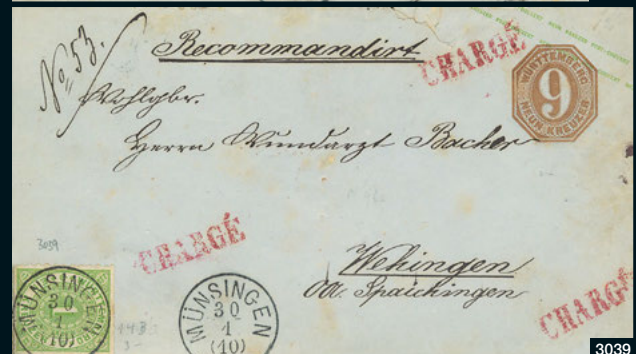 No 53.
Recommandirt
CHARGÉ
WÜRTTEMBERG
9
NEUN KREUZER
Wohlgbr.
Herrn Wundarzt Bacher
3039
CHARGÉ
Wehingen
OA. Spaichingen
MÜNSINGEN
30
1
(10)
MÜNSINGEN
30
1
(10)
CHARGÉ
3039